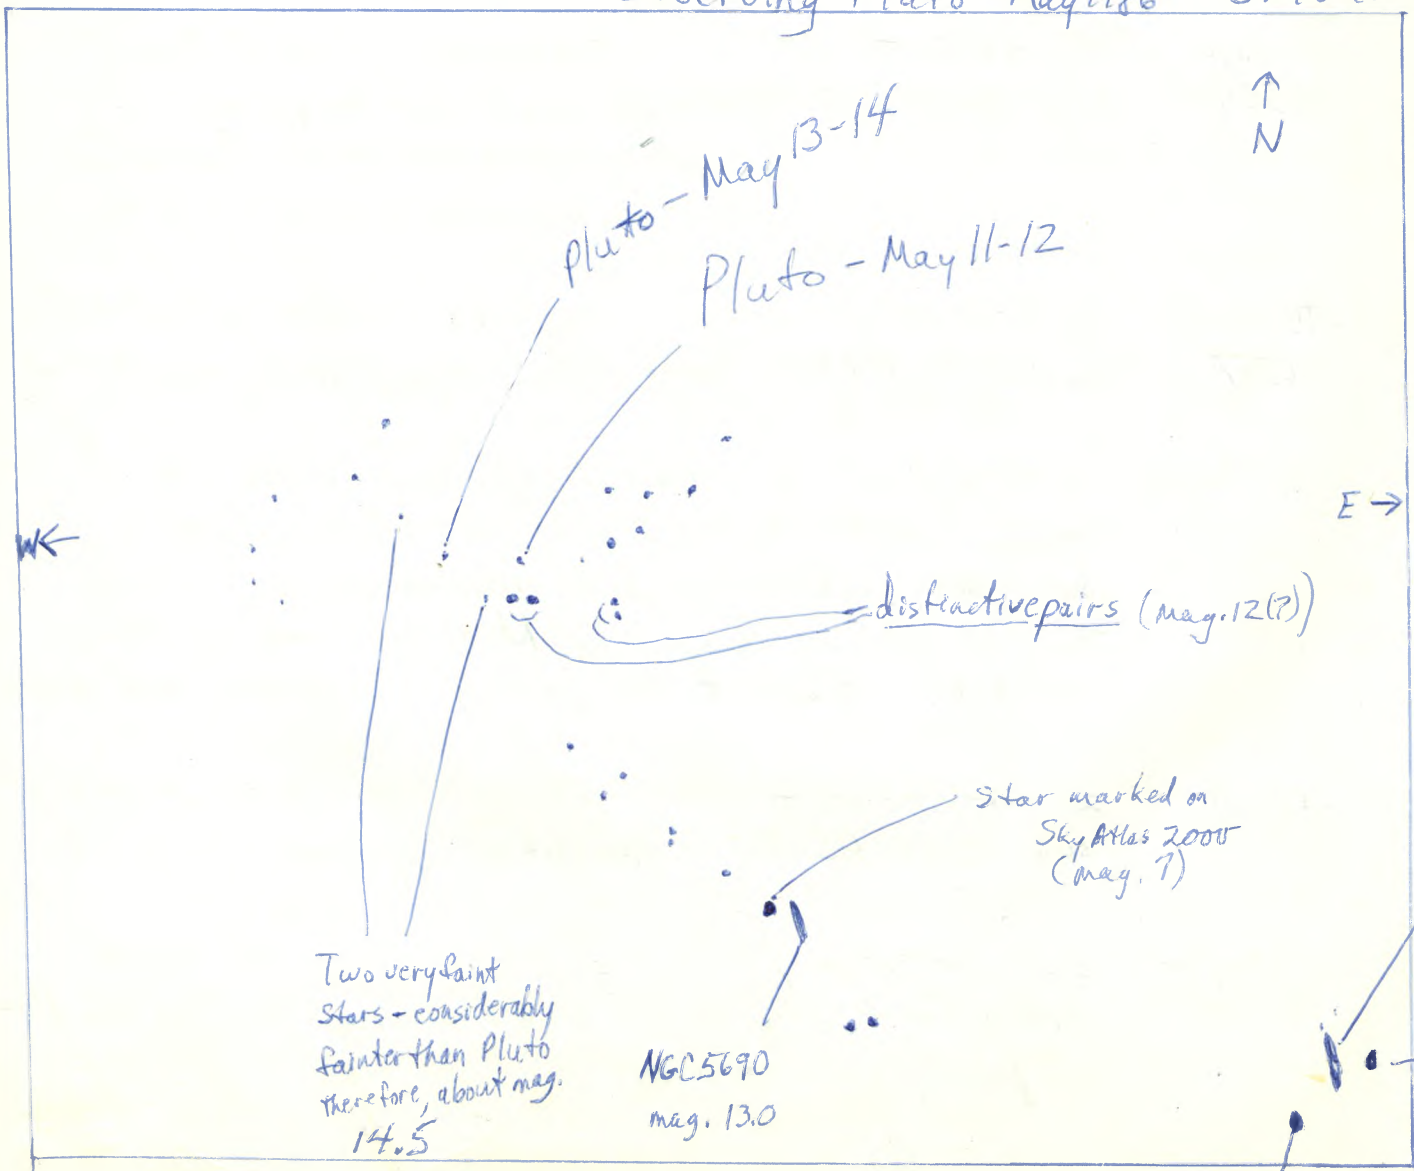 Observing Pluto May 1986
↑
N
Pluto - May 13-14
Pluto - May 11-12
E →
W ←
distinctive pairs (mag. 12(?))
Star marked on
Sky Atlas 2000
(mag. 7)
Two very faint
stars - considerably
fainter than Pluto
therefore, about mag.
14.5
NGC5690
mag. 13.0